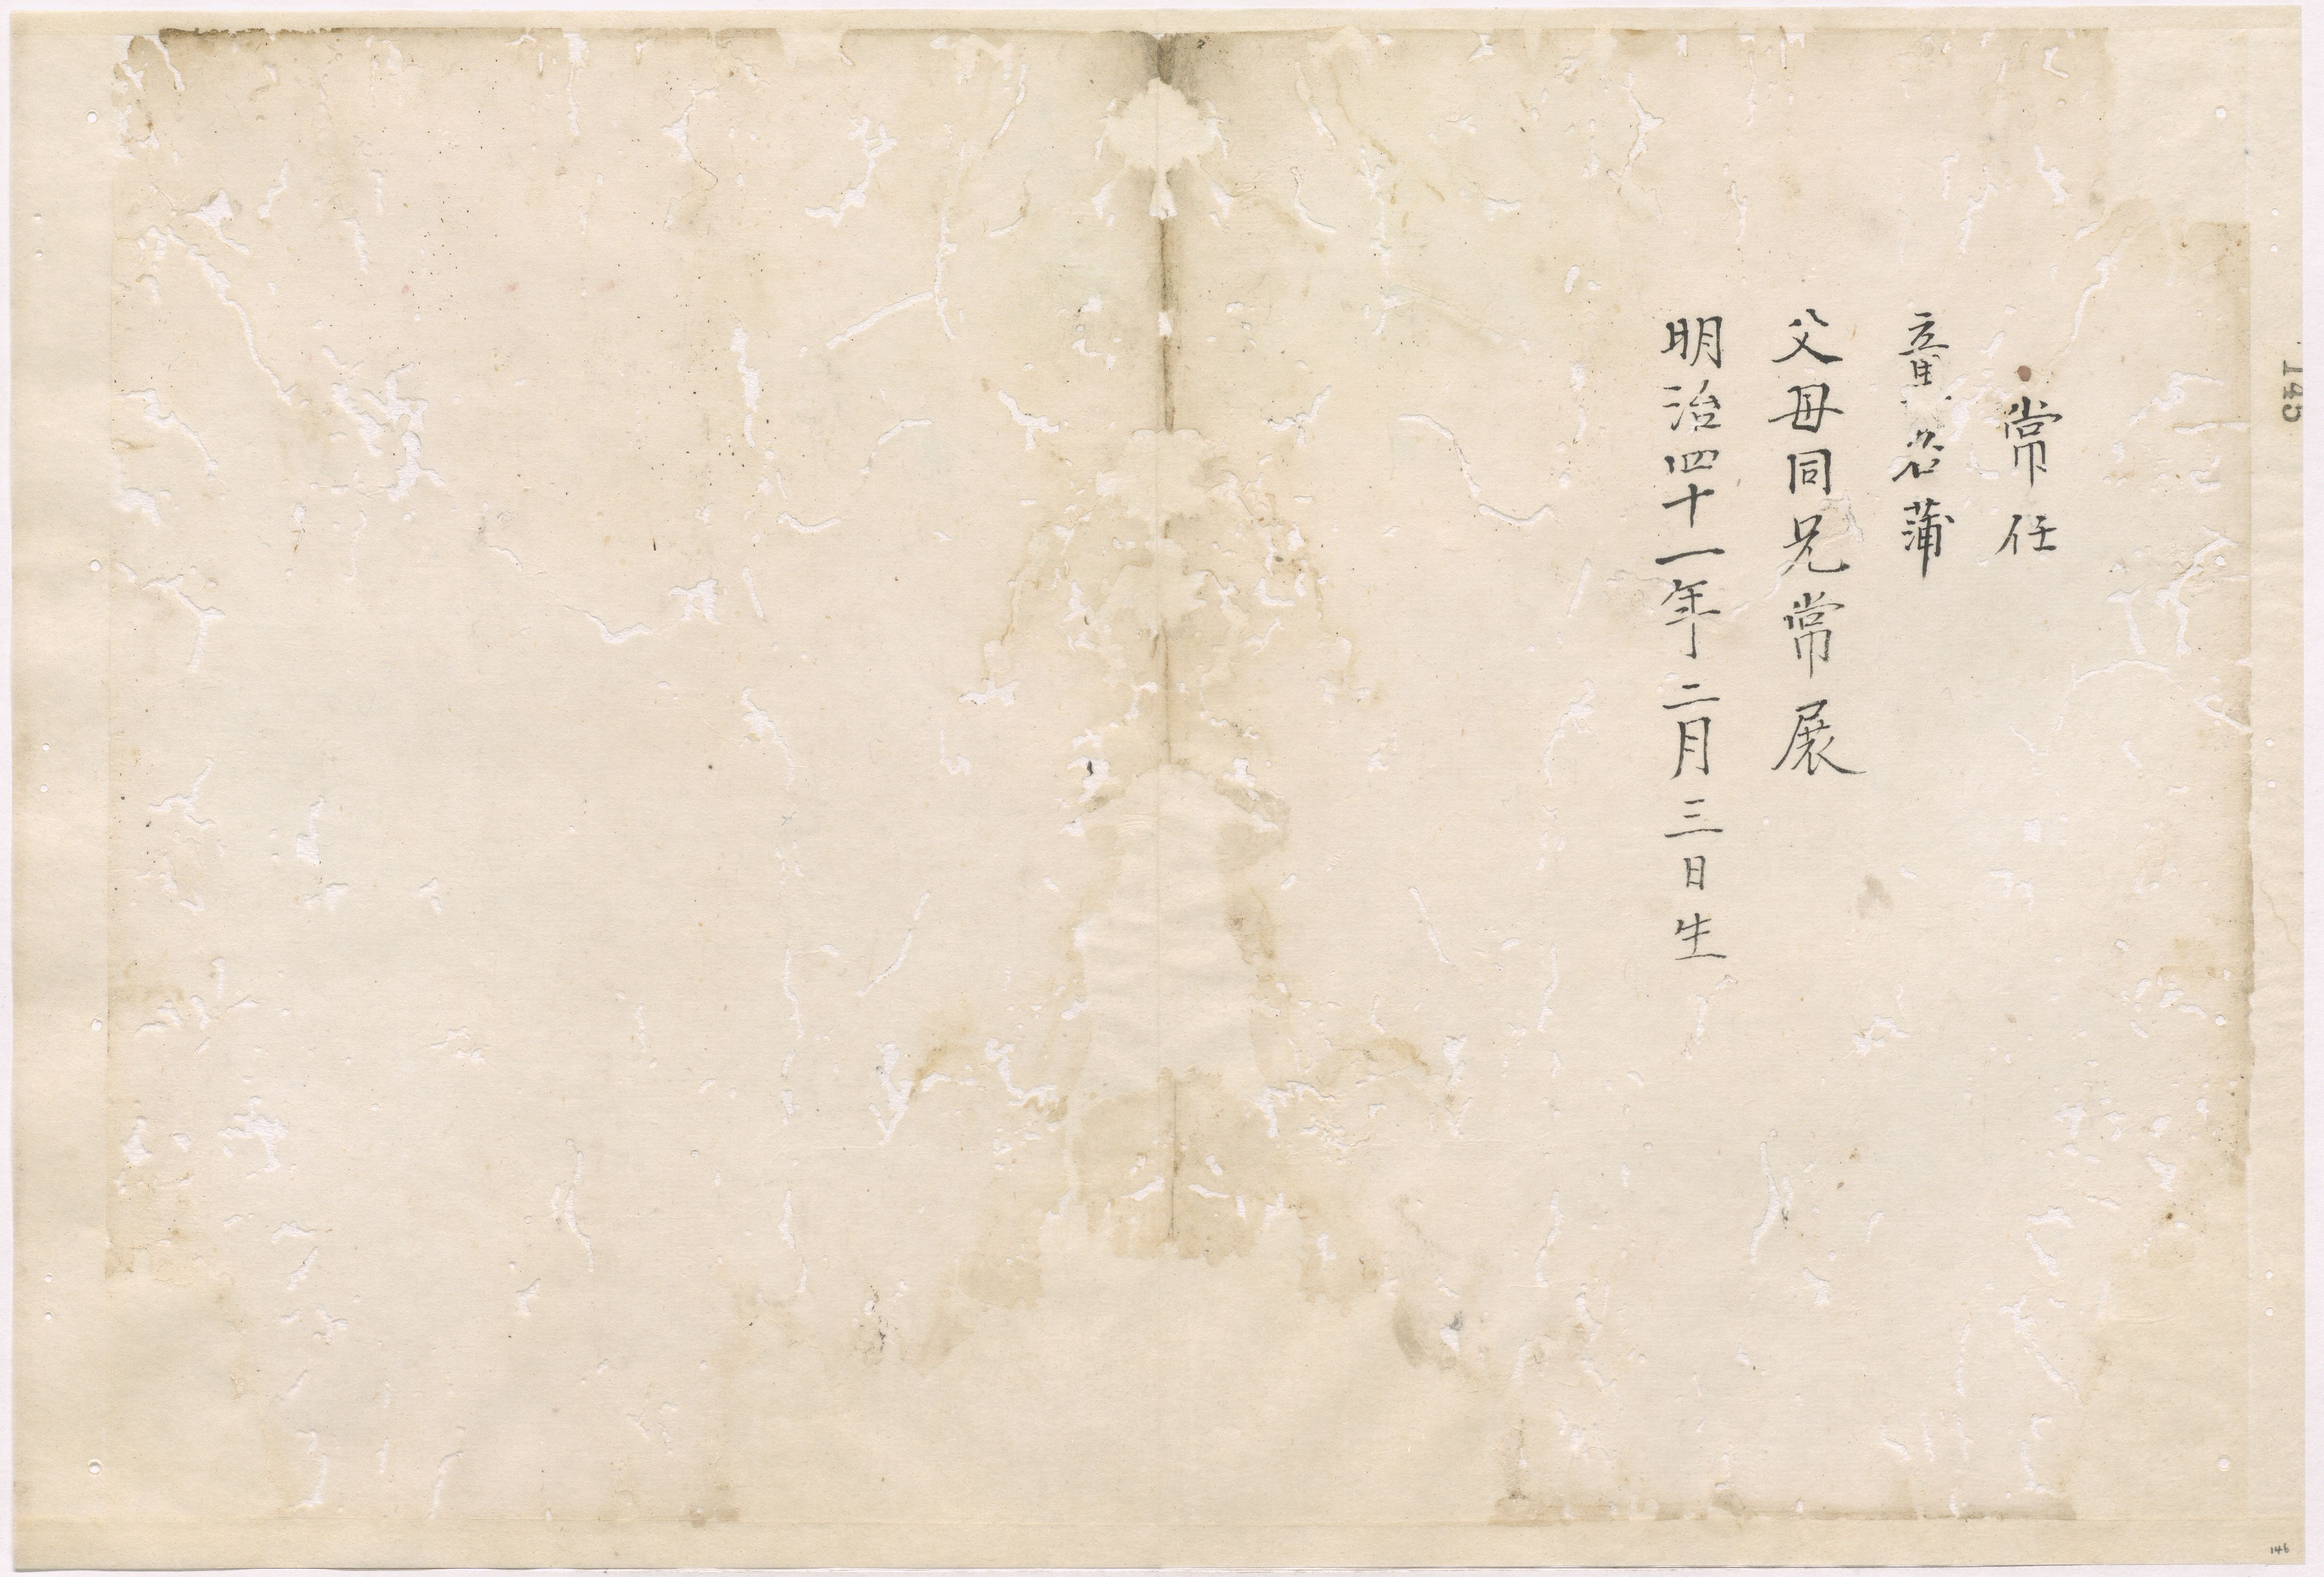 145
常任
童名蒲
父母同兄常展
明治四十一年二月三日生
146